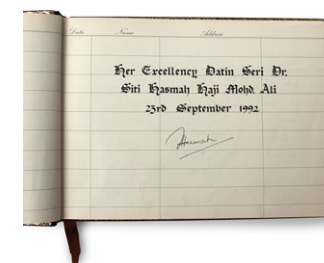 Date Name Address
Her Excellency Datin Seri Dr.
Siti Hasmah Haji Mohd. Ali
23rd September 1992
Hasmah